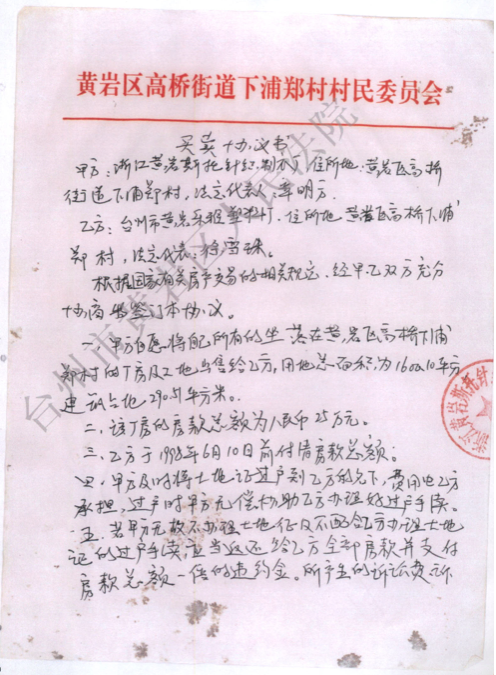 黄岩区高桥街道下浦郑村村民委员会
买卖协议书
甲方：浙江黄岩斯托针织制衣厂 住所地：黄岩区高桥
街道下浦郑村，法定代表人 章明方.
乙方：台州市黄岩 塑料厂. 住所地 黄岩区高桥下浦
郑村，法定代表：徐雪珠。
根据国家有关房产交易的相关规定，经甲乙双方充分
协商 签订本协议。
一、甲方自愿将所有的坐落在黄岩区高桥下浦
郑村的厂房及土地出售给乙方，用地总面积为 平方
建筑占地 平方米。
二、该厂房的房款总额为人民币25万元。
三、乙方于1998年6月10日前付清房款总额。
四、甲方及时将土地证过户到乙方的名下，费用由乙方
承担，过户时甲方无偿协助乙方办理好过户手续。
五、若甲方无故不办理土地征及不配合乙方办理土地
证的过户手续，应当返还给乙方全部房款并支付
房款总额一倍的违约金。所产生的诉讼费诉
台州市黄岩区人民法院
浙江黄岩斯托针